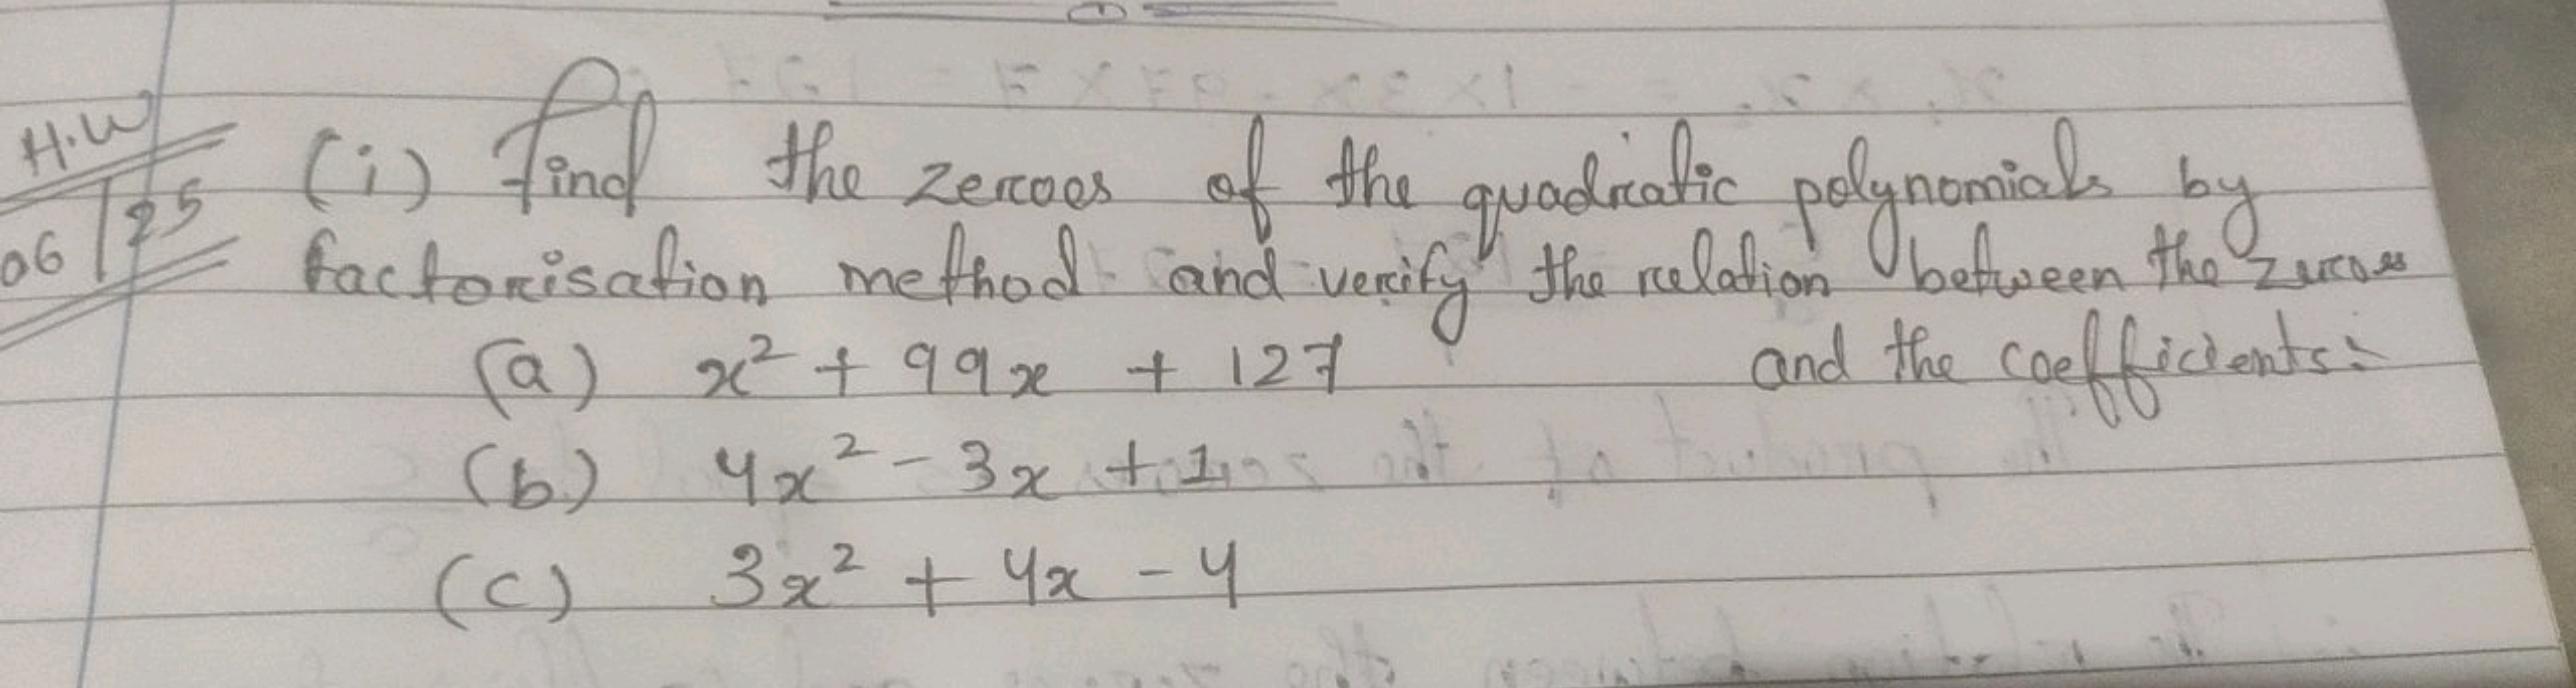 H.W
06/25
(i) find the zeroes of the quadratic polynomials by
factorisation method and verify the relation between the zeroes
and the coefficients:
(a) x² + 99x + 127
(b) 4x² - 3x + 1
(c) 3x² + 4x - 4